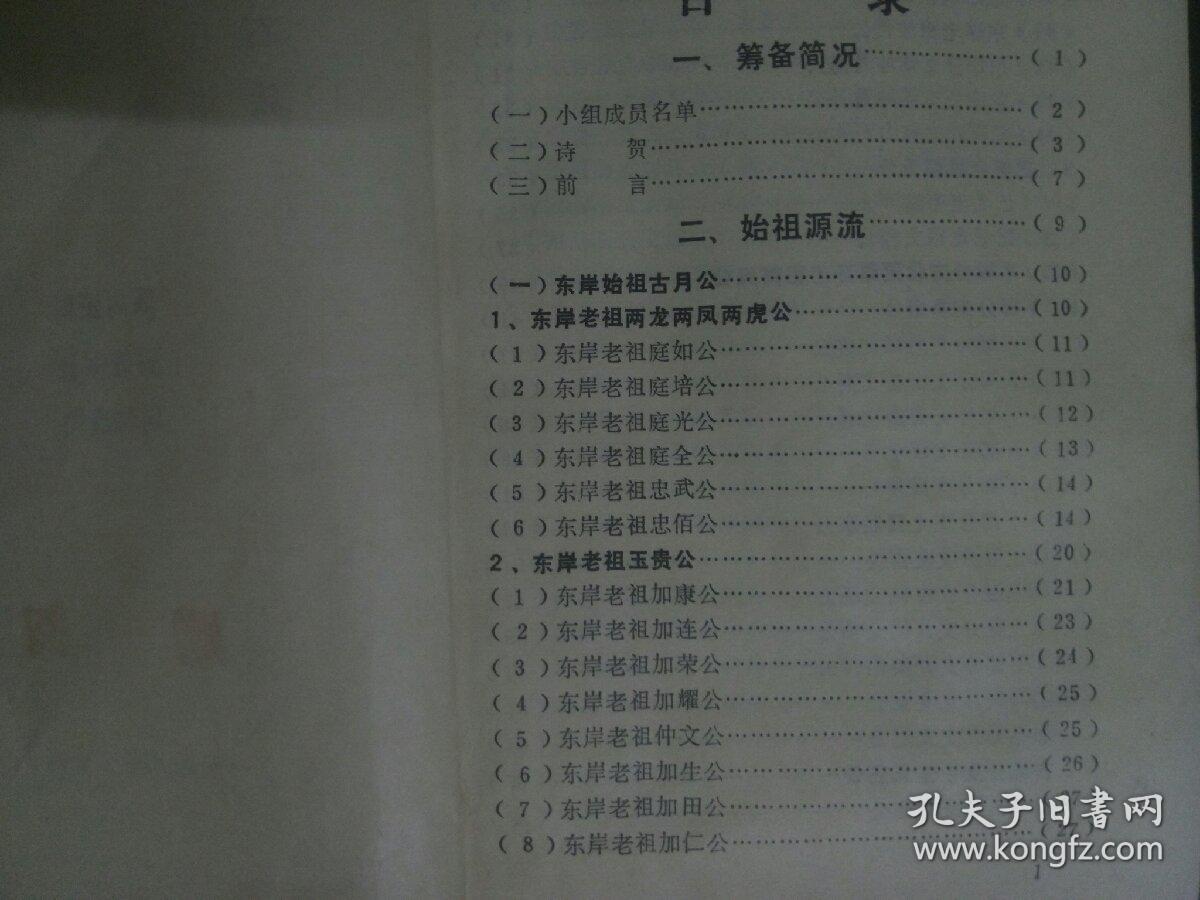 目 录
一、筹备简况……………………(1)
(一)小组成员名单……………………(2)
(二)诗 贺……………………(3)
(三)前 言……………………(7)
二、始祖源流……………………(9)
(一)东岸始祖古月公……………………(10)
1、东岸老祖两龙两凤两虎公……………………(10)
(1)东岸老祖庭如公……………………(11)
(2)东岸老祖庭培公……………………(11)
(3)东岸老祖庭光公……………………(12)
(4)东岸老祖庭全公……………………(13)
(5)东岸老祖忠武公……………………(14)
(6)东岸老祖忠佰公……………………(14)
2、东岸老祖玉贵公……………………(20)
(1)东岸老祖加康公……………………(21)
(2)东岸老祖加连公……………………(23)
(3)东岸老祖加荣公……………………(24)
(4)东岸老祖加耀公……………………(25)
(5)东岸老祖仲文公……………………(25)
(6)东岸老祖加生公……………………(26)
(7)东岸老祖加田公……………………(27)
(8)东岸老祖加仁公……………………(27)
1
孔夫子旧书网
www.kongfz.com